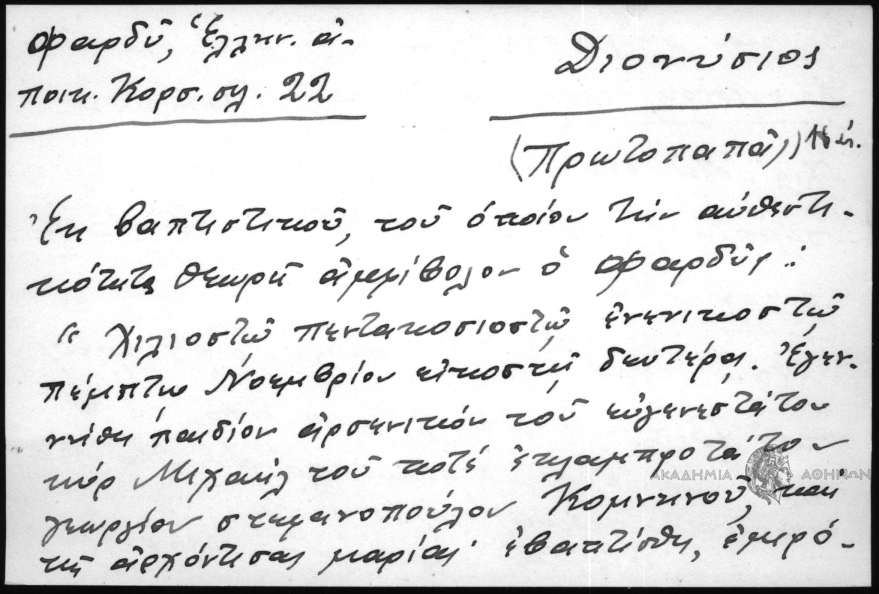 Φαρδῦ, Ἑλλην. ἀ-
ποικ. Κορσ. σλ. 22
Διονύσιος
(Πρωτοπαπᾶς)
Ἐκ βαπτιστικοῦ, τοῦ ὁποίου τὴν αὐθεντι-
κότητα θεωρεῖ ἀμφίβολον ὁ Φαρδῦς:
"Χιλιοστῷ πεντακοσιοστῷ ἐνενικοστῷ
πέμπτῳ Νοεμβρίου εἰκοστῇ δευτέρᾳ. Ἐγεν-
νήθη παιδίον ἀρσενικόν τοῦ εὐγενεστάτου
κύρ Μιχαήλ τοῦ ποτέ ἐκλαμπροτάτου
γεωργίου στεφανοπούλου Κομνηνοῦ, καί
τῆς ἀρχόντισας μαρίας· ἐβαπτίσθη, ἐμυρό-
ΑΚΑΔΗΜΙΑ ΑΘΗΝΩΝ